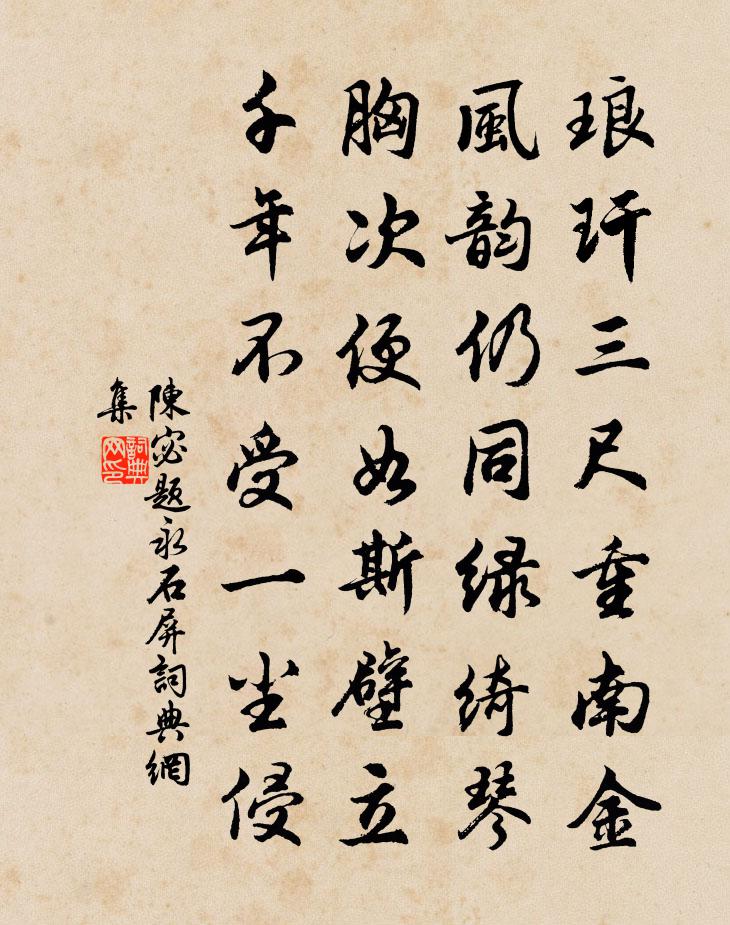 琅玕三尺重南金
風韵仍同绿绮琴
胸次便如斯壁立
千年不受一尘侵
陳宓题永石屏詞典網
集
詞典
网印